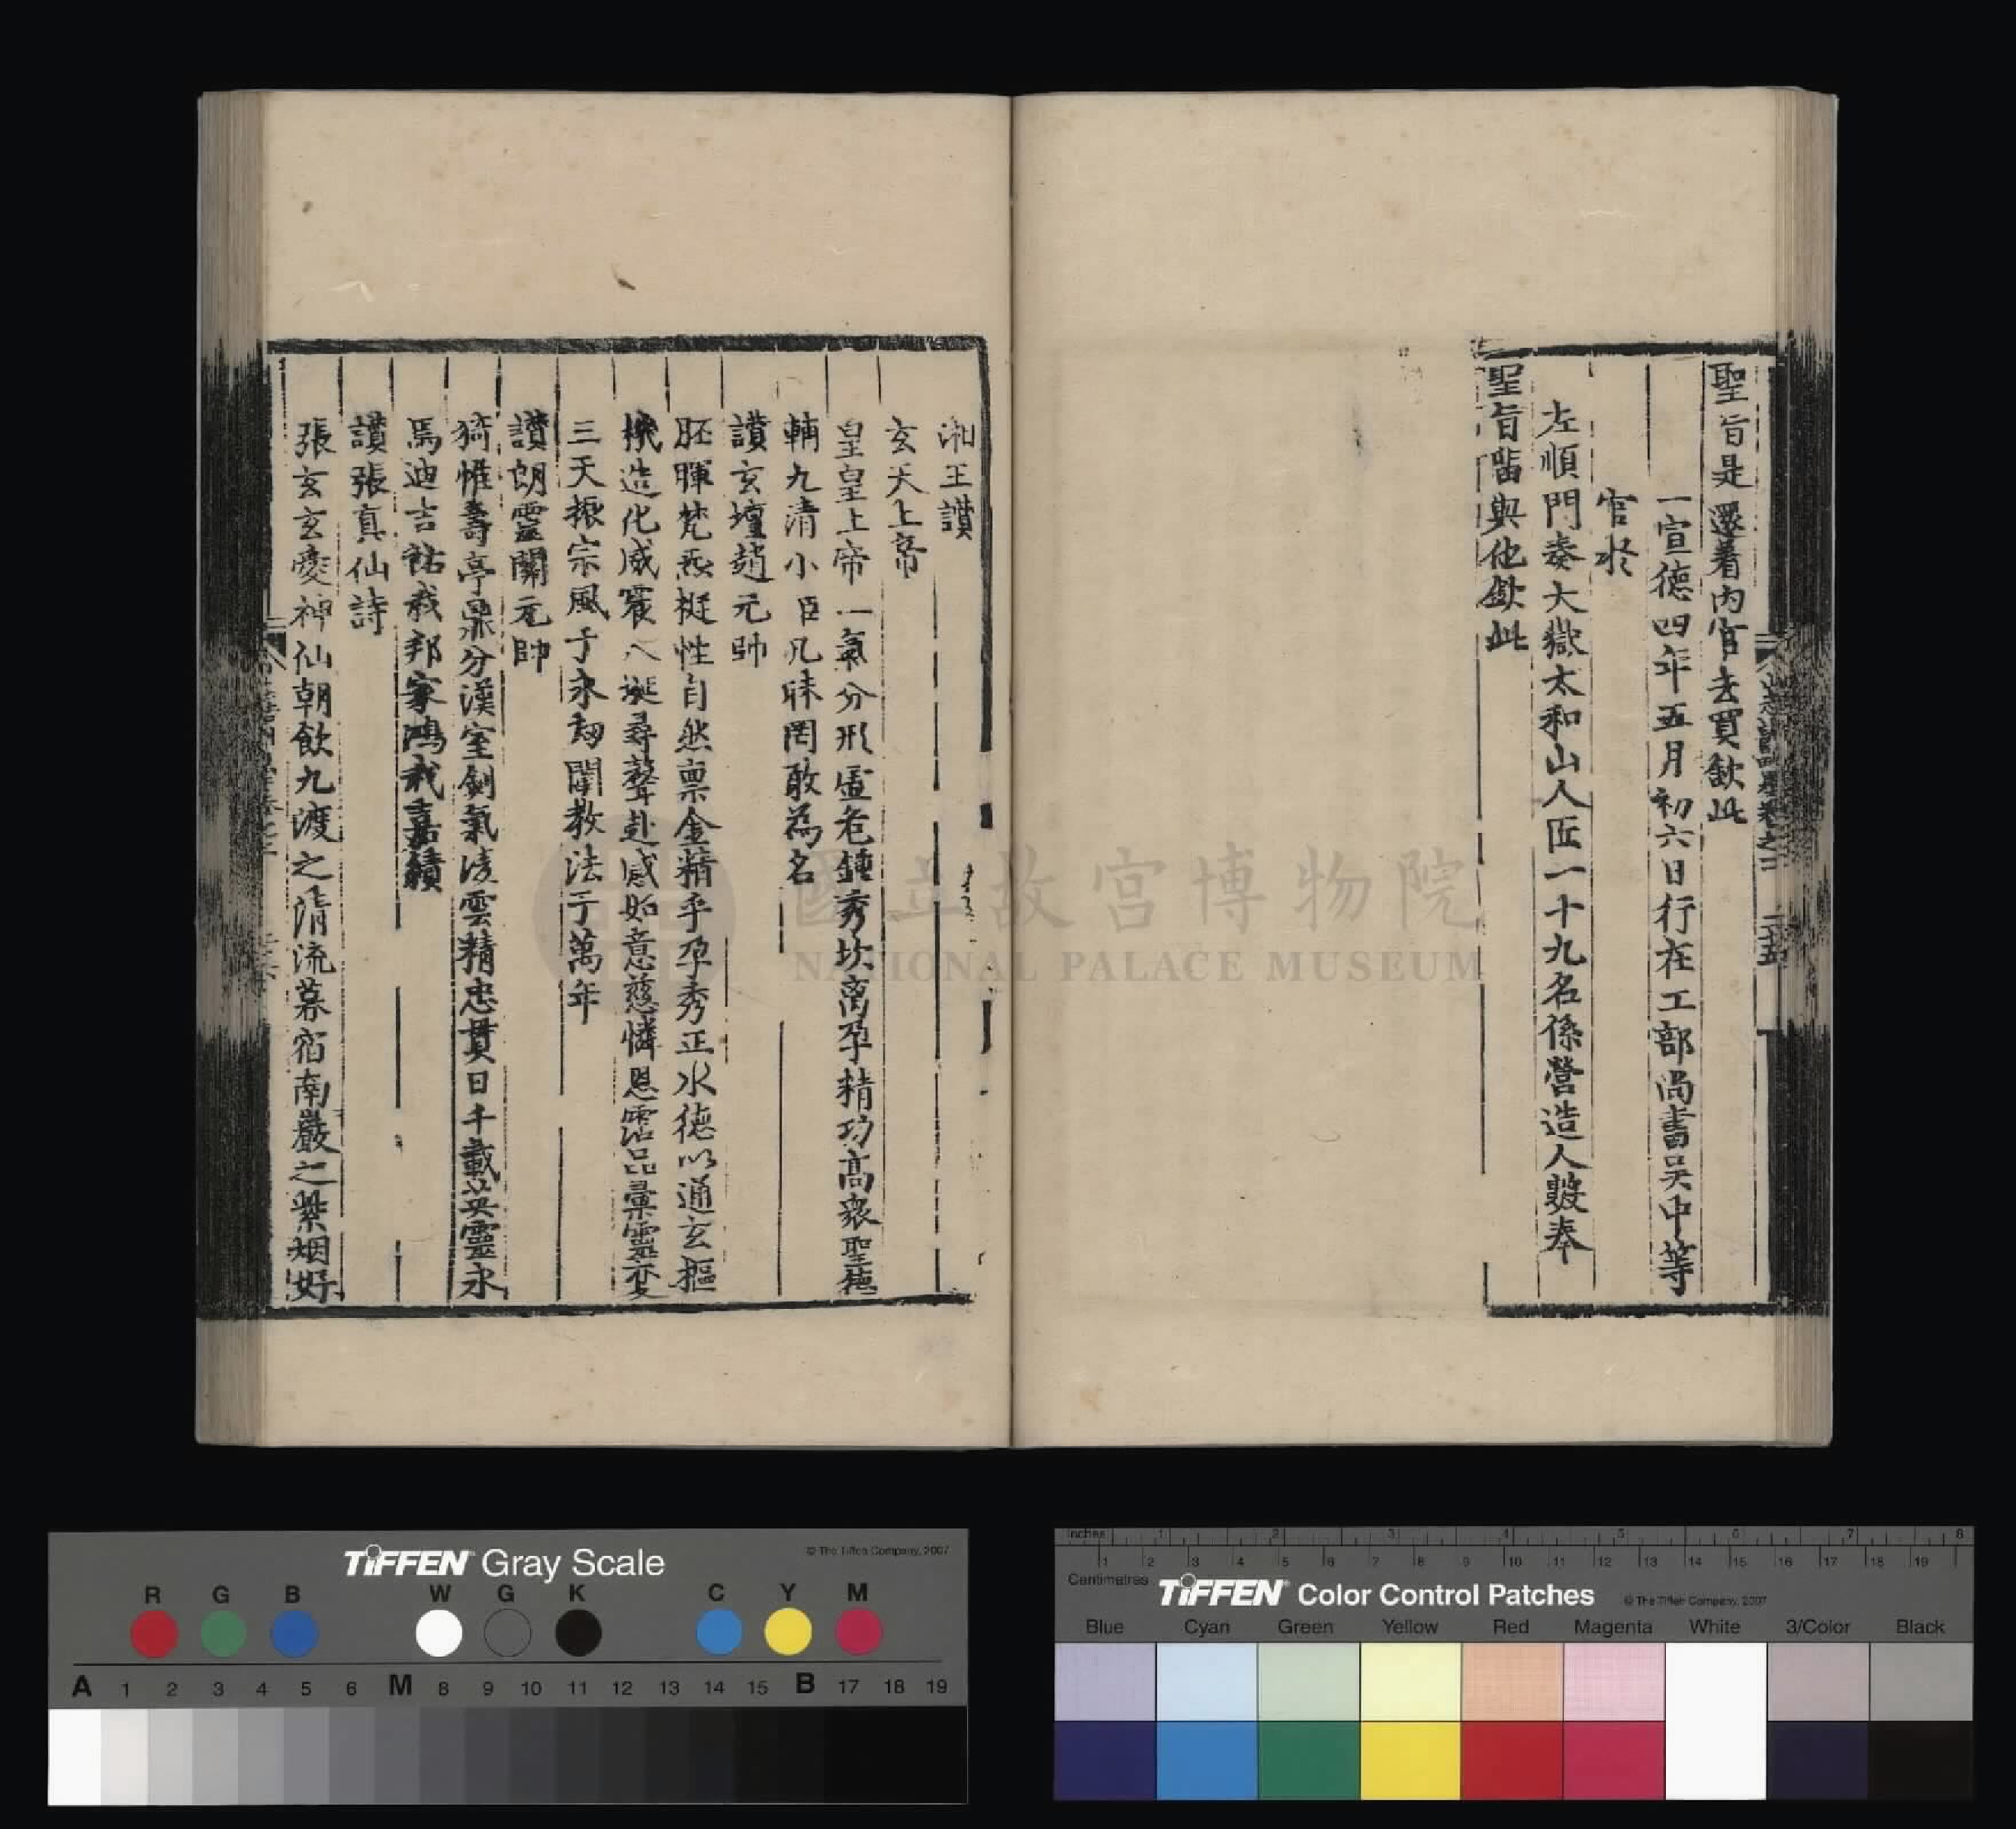 聖旨是還着內官去買欽此
一宣德四年五月初六日行在工部尚書吳中等
官於
左順門奏大嶽太和山人匠一十九名係營造人數奉
聖旨畱與他欽此
湘王讚
玄天上帝
皇皇上帝一氣分形虛危鍾秀坎离孕精功高衆聖德
輔九清小臣凡昧罔敢為名
讚玄壇趙元帥
胚腪梵炁挺性自然禀金精乎孕秀正水德以通玄摳
機造化威震八埏尋聲赴感如意慈憐恩霑品彚靈变
三天振宗風于永刼闡教法于萬年
讚朗靈關元帥
猗惟壽亭鼎分漢室劍氣凌雲精忠貫日千載英靈永
焉迪吉祐我邦家鴻我嘉績
讚張真仙詩
張玄玄愛神仙朝飲九渡之清流暮宿南巖之紫烟好
國立故宮博物院
NATIONAL PALACE MUSEUM
TIFFEN Gray Scale
© The Tiffen Company, 2007
R G B W G K C Y M
A 1 2 3 4 5 6 M 8 9 10 11 12 13 14 15 B 17 18 19
Inches 1 2 3 4 5 6 7 8
1 2 3 4 5 6 7 8 9 10 11 12 13 14 15 16 17 18 19
Centimetres
TIFFEN Color Control Patches
© The Tiffen Company, 2007
Blue Cyan Green Yellow Red Magenta White 3/Color Black